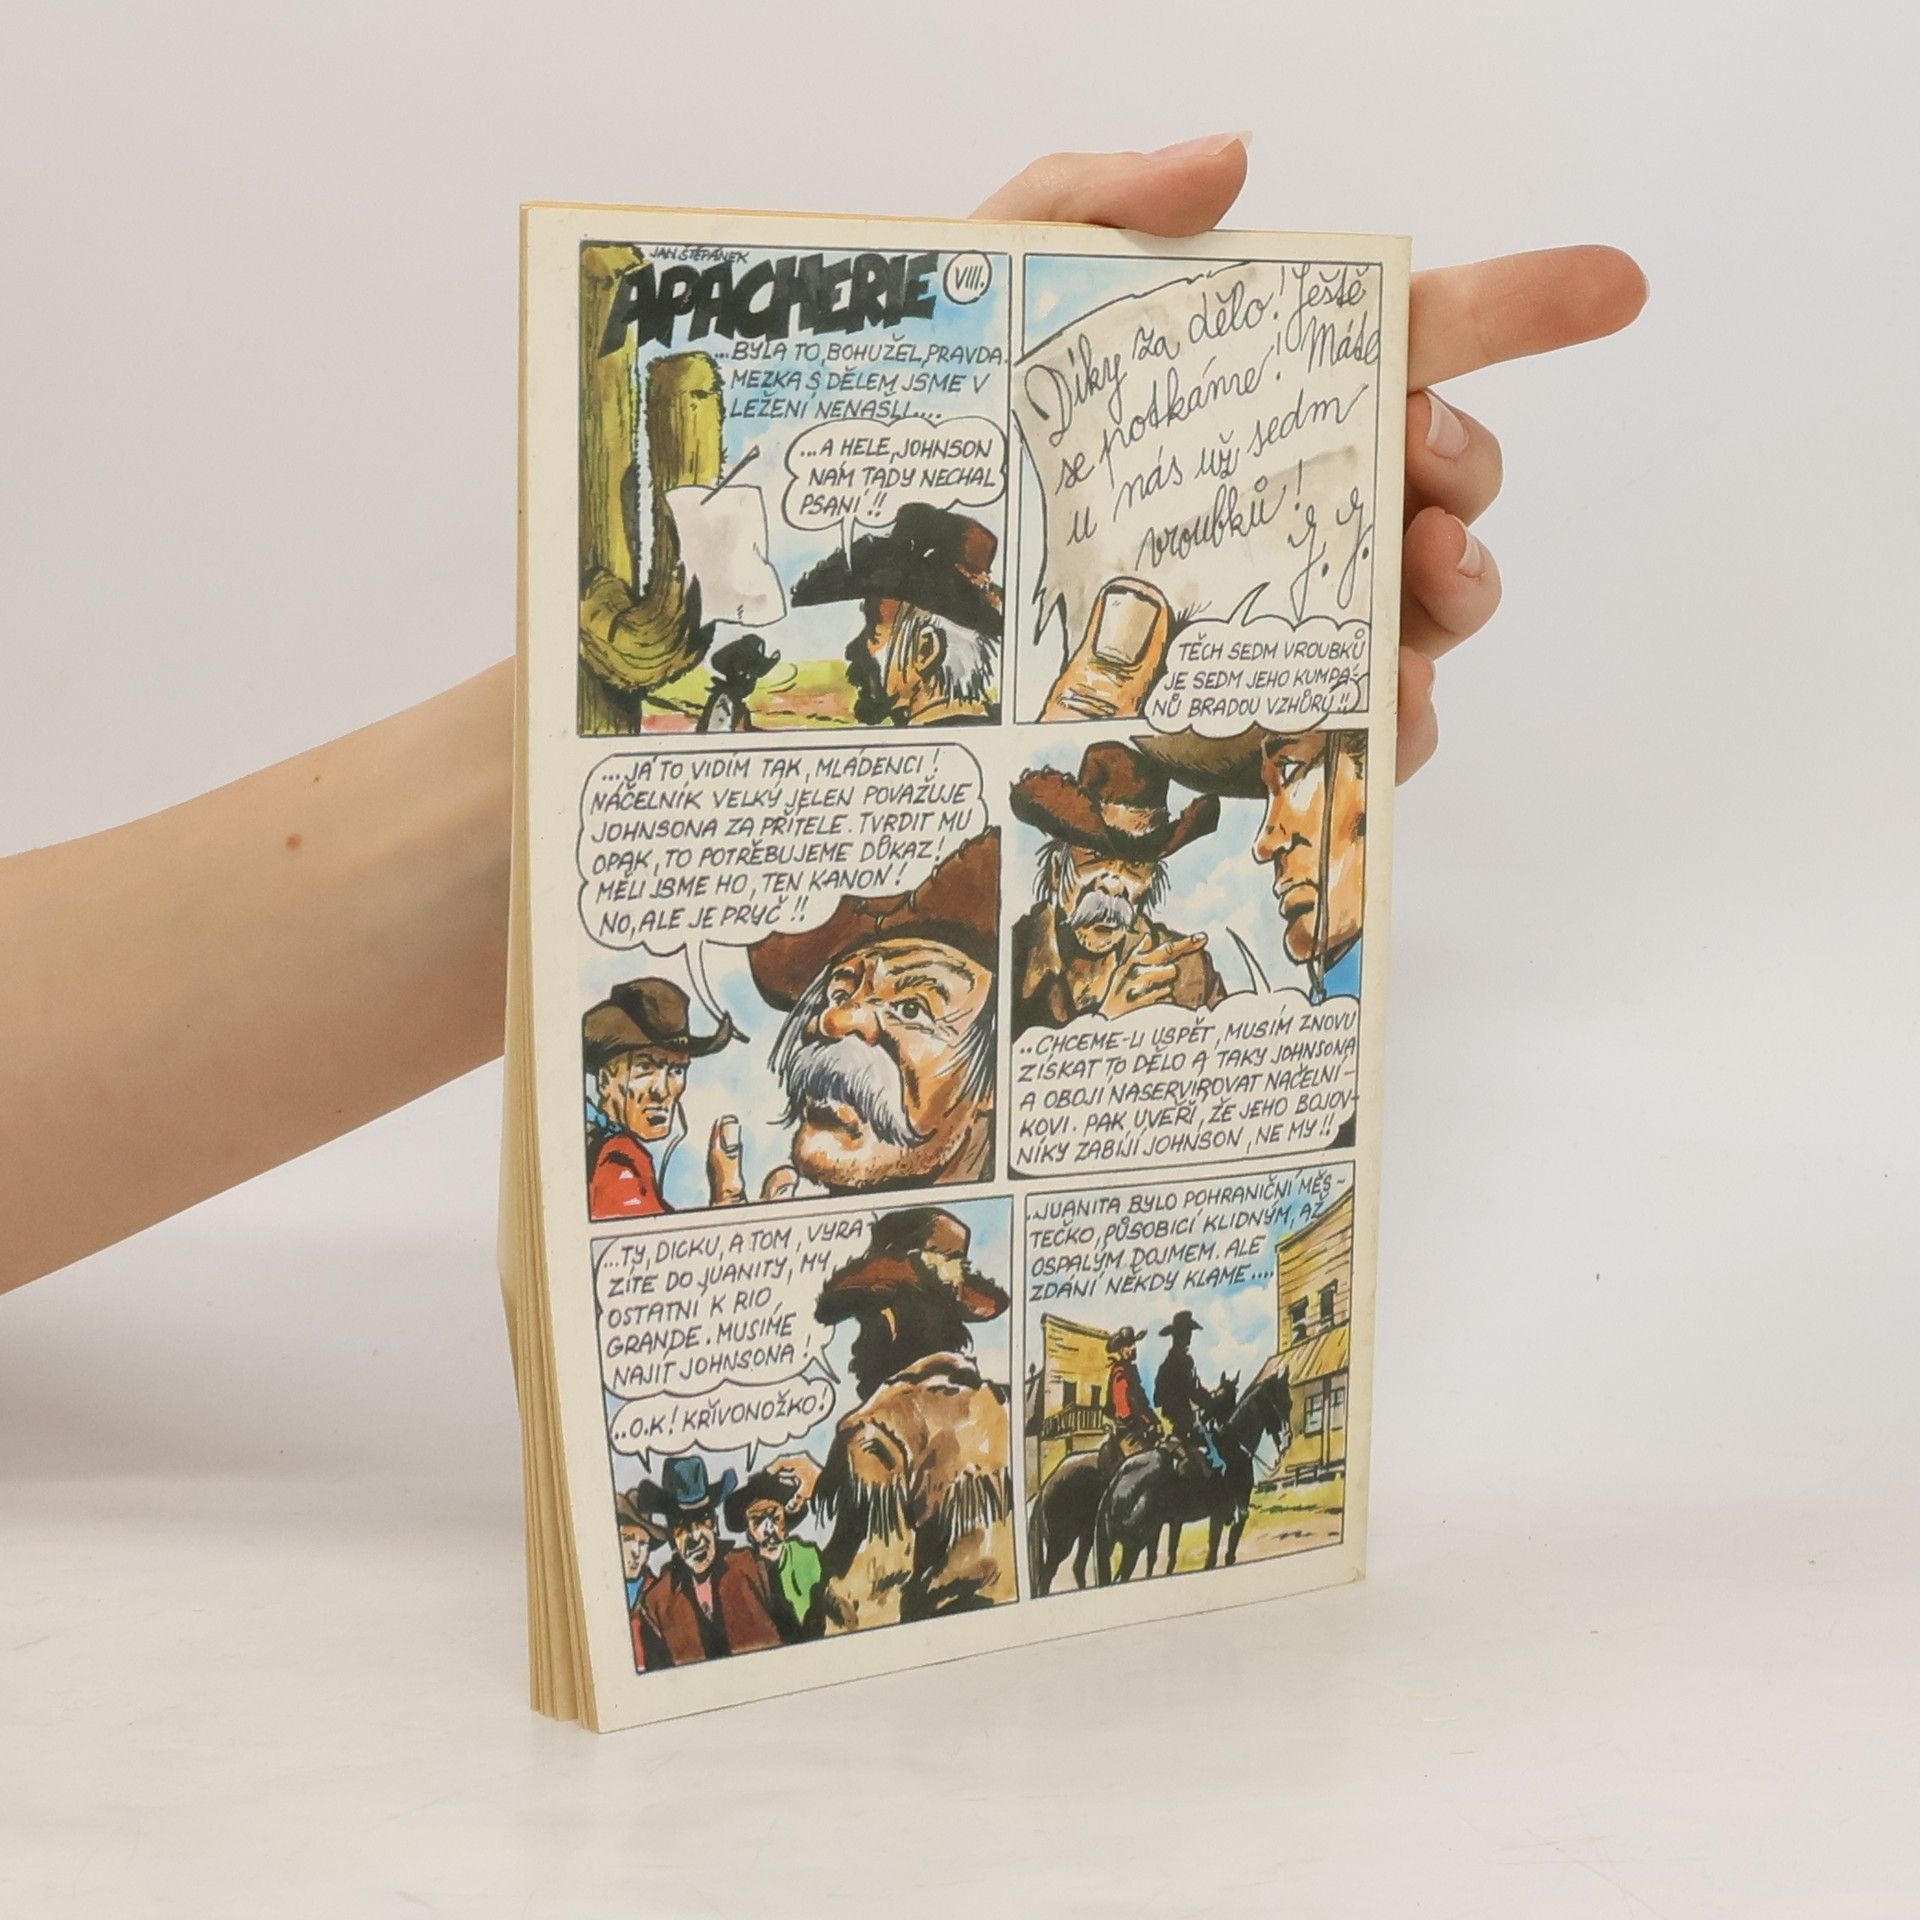 JAN ŠTĚPÁNEK
APACHERIE VIII.
...BYLA TO, BOHUŽEL, PRAVDA.
MEZKA S DĚLEM JSME V
LEŽENÍ NENAŠLI....
...A HELE, JOHNSON
NÁM TADY NECHAL
PSANÍ!!
Díky za dělo! Ještě
se potkáme! Máte
u nás už sedm
vroubků!
J. J.
TĚCH SEDM VROUBKŮ
JE SEDM JEHO KUMPÁ-
NŮ BRADOU VZHŮRU!!
...JÁ TO VIDÍM TAK, MLÁDENCI!
NÁČELNÍK VELKÝ JELEN POVAŽUJE
JOHNSONA ZA PŘÍTELE. TVRDIT MU
OPAK, TO POTŘEBUJEME DŮKAZ!
MĚLI JSME HO, TEN KANON!
NO, ALE JE PRYČ!!
..CHCEME-LI USPĚT, MUSÍM ZNOVU
ZÍSKAT TO DĚLO A TAKY JOHNSONA
A OBOJÍ NASERVÍROVAT NÁČELNÍ-
KOVI. PAK UVĚŘÍ, ŽE JEHO BOJOV-
NÍKY ZABÍJÍ JOHNSON, NE MY!!
...TY, DICKU, A TOM, VYRA-
ZÍTE DO JUANITY, MY,
OSTATNÍ K RIO
GRANDE. MUSÍME
NAJÍT JOHNSONA!
..O.K! KŘIVONOŽKO!
..JUANITA BYLO POHRANIČNÍ MĚS-
TEČKO, PŮSOBÍCÍ KLIDNÝM, AŽ
OSPALÝM DOJMEM. ALE
ZDÁNÍ NĚKDY KLAME....